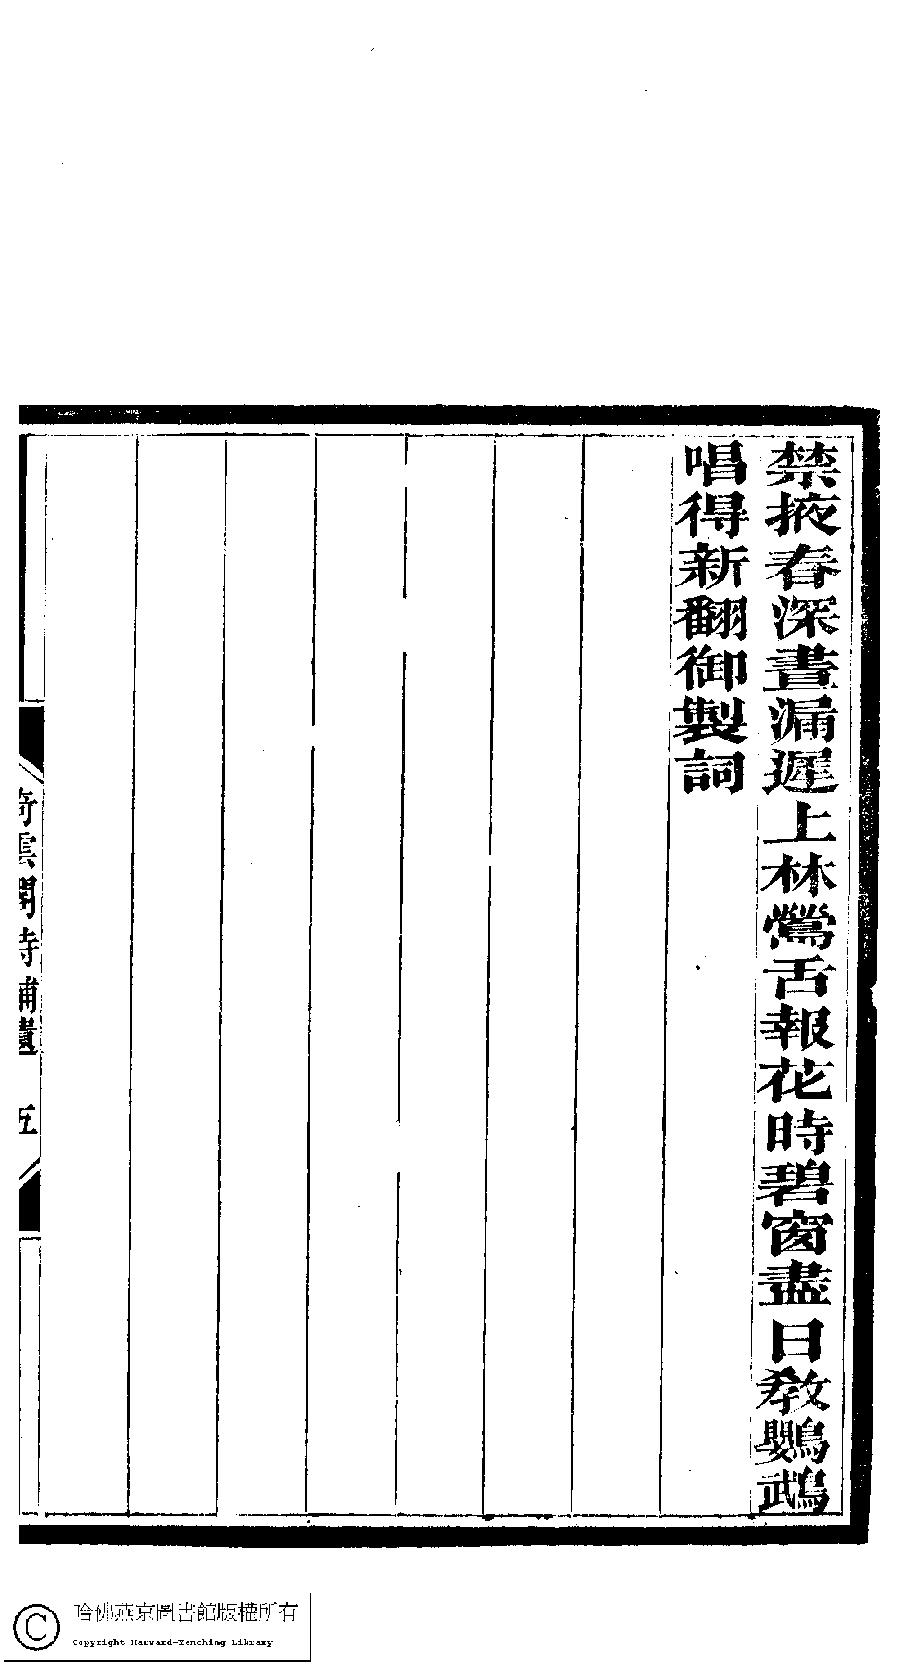 禁掖春深晝漏遲上林鶯舌報花時碧窗盡日敎鸚鵡
唱得新翻御製詞
倚雲閣詩補遺 五
哈佛燕京圖書館版權所有
Copyright Harvard-Yenching Library